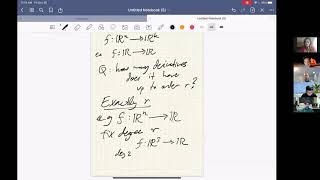 Untitled Notebook (5)
f: ℝⁿ ⟶ ℝᵏ
ex f: ℝ ⟶ ℝ
Q: how many derivatives
does it have
up to order r?
Exactly r
eg f: ℝⁿ ⟶ ℝ
fix degree r
f: ℝ² ⟶ ℝ
deg 2